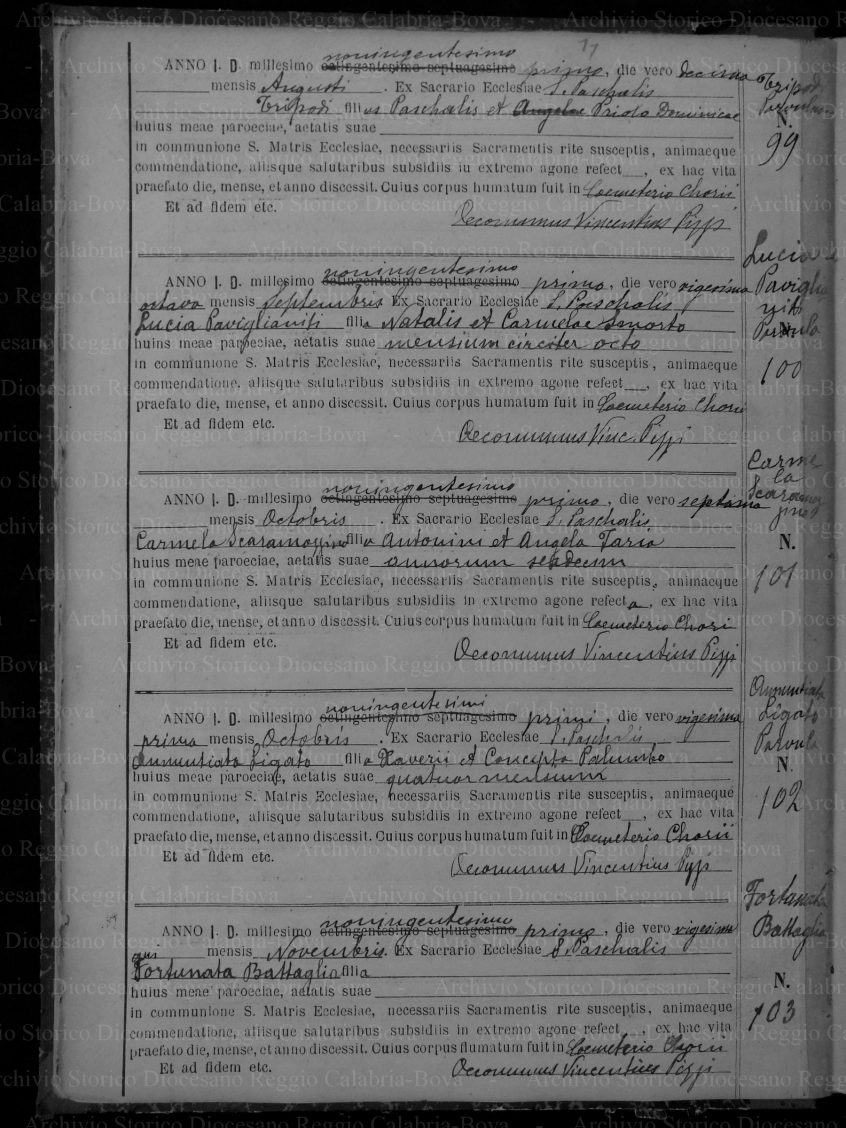 17
noningentesimo
ANNO I. D. millesimo octingentesimo septuagesimo primo, die vero decima
mensis Augusti. Ex Sacrario Ecclesiae S. Paschalis
Tripodi filius Paschalis et Angelae Priolo Dominicae
huius meae paroeciae, aetatis suae
in communione S. Matris Ecclesiae, necessariis Sacramentis rite susceptis, animaeque
commendatione, aliisque salutaribus subsidiis in extremo agone refect , ex hac vita
praefato die, mense, et anno discessit. Cuius corpus humatum fuit in Coemeterio Chorii
Et ad fidem etc.
Oeconumus Vincentius Pizzi
Tripodi
Parvulus
N.
99
noningentesimo
ANNO I. D. millesimo octingentesimo septuagesimo primo, die vero vigesima
octava mensis Septembris Ex Sacrario Ecclesiae S. Paschalis
Lucia Paviglianiti filia Natalis et Carmelae Smorto
huius meae paroeciae, aetatis suae mensium circiter octo
in communione S. Matris Ecclesiae, necessariis Sacramentis rite susceptis, animaeque
commendatione, aliisque salutaribus subsidiis in extremo agone refect , ex hac vita
praefato die, mense, et anno discessit. Cuius corpus humatum fuit in Coemeterio Chorii
Et ad fidem etc.
Oeconumus Vinc. Pizzi
Lucia
Paviglia
niti
Parvula
N.
100
noningentesimo
ANNO I. D. millesimo octingentesimo septuagesimo primo, die vero septima
mensis Octobris. Ex Sacrario Ecclesiae S. Paschalis
Carmela Scaramozzino filia Antonini et Angela Faria
huius meae paroeciae, aetatis suae annorum sexdecim
in communione S. Matris Ecclesiae, necessariis Sacramentis rite susceptis, animaeque
commendatione, aliisque salutaribus subsidiis in extremo agone refecta, ex hac vita
praefato die, mense, et anno discessit. Cuius corpus humatum fuit in Coemeterio Chori
Et ad fidem etc.
Oeconumus Vincentius Pizzi
Carme
la
Scaramoz
zino
N.
101
noningentesimi
ANNO I. D. millesimo octingentesimo septuagesimo primi, die vero vigesima
prima mensis Octobris. Ex Sacrario Ecclesiae S. Paschalis
Annuntiata Ligato filia Xaverii et Concepta Palumbo
huius meae paroeciae, aetatis suae quatuor mensium
in communione S. Matris Ecclesiae, necessariis Sacramentis rite susceptis, animaeque
commendatione, aliisque salutaribus subsidiis in extremo agone refect , ex hac vita
praefato die, mense, et anno discessit. Cuius corpus humatum fuit in Coemeterio Chorii
Et ad fidem etc.
Oeconumus Vincentius Pizzi
Annuntiata
Ligato
Parvula
N.
102
noningentesimo
ANNO I. D. millesimo octingentesimo septuagesimo primo, die vero vigesima
mensis Novembris. Ex Sacrario Ecclesiae S. Paschalis
Fortunata Battaglia filia
huius meae paroeciae, aetatis suae
in communione S. Matris Ecclesiae, necessariis Sacramentis rite susceptis, animaeque
commendatione, aliisque salutaribus subsidiis in extremo agone refect , ex hac vita
praefato die, mense, et anno discessit. Cuius corpus flumatum fuit in Coemeterio Chorii
Et ad fidem etc.
Oeconumus Vincentius Pizzi
Fortunata
Battaglia
N.
103
Archivio Storico Diocesano Reggio Calabria-Bova